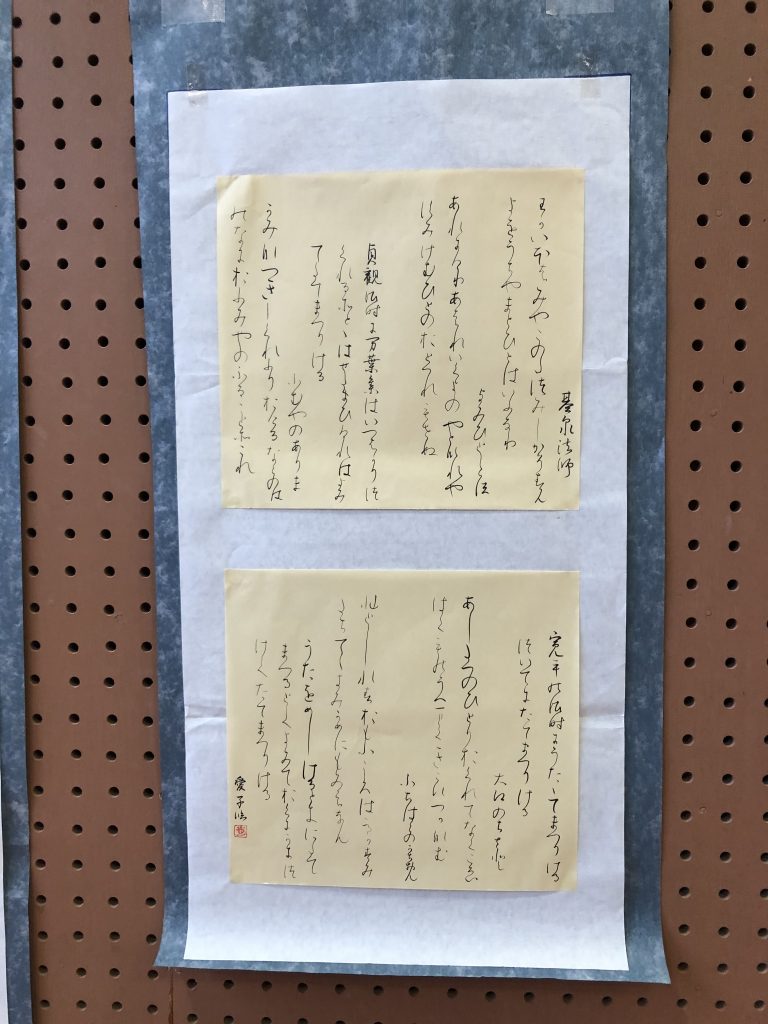 基泉法師
わかいほはみやこのたつみしかそすん
よをうちやまとひとはいふなり
よみひとしらす
あれにけりあはれいくよのやとなれや
すみけむひとのおとつれもせぬ
貞観御時に万葉集はいつはかりつ
くれるそとゝはせたまひけれはよみ
てたてまつりける
ふむやのありすゑ
かみなつきしくれふりおけるならのは
のなにおふみやのふることそこれ
寛平の御時にうたたてまつりける
ついてにたてまつりける
大江のちさと
あしたつのひとりおくれてなくこゑ
はくものうへまてきこえつかなむ
ふちはらのかちおん
ひとしれすおもふこゝろははるかすみ
たちいてゝきみかめにもみえなん
うためしけるときにたて
まつるとてよみておくにかきつ
けてたてまつりける
愛子臨